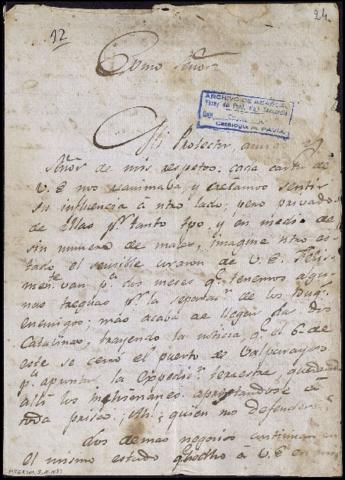 12
24
Exmo Señor
ARCHIVO DE ABASCAL
Catálogo M. PAVIA
Mi Protector, amigo y
Señor de mis respetos: cada carta de
V. E nos reanimaba, y creíamos sentir
su influencia á ntro lado; pero privados
de ellas pr. tanto tpo, y en medio de
sin numero de males, imagine ntro es-
tado el sensible corazon de V. E.
van pa. dos meses qe. tenemos algu-
nas treguas pr. la separan. de los Buqs.
enemigos; mas acaba de llegar
trayendo la noticia, qe. el 6 de
este se cerró el puerto de Valparayso
pa. apuntar la Expedicn. terrestre, quedando
allí los
toda prisa; Ah! quien no defender
Los demas negocios continuan en
el mismo estado á V. E en mi